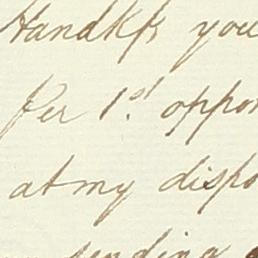 Handkfs you
Per 1st. oppor
at my dispo
sending